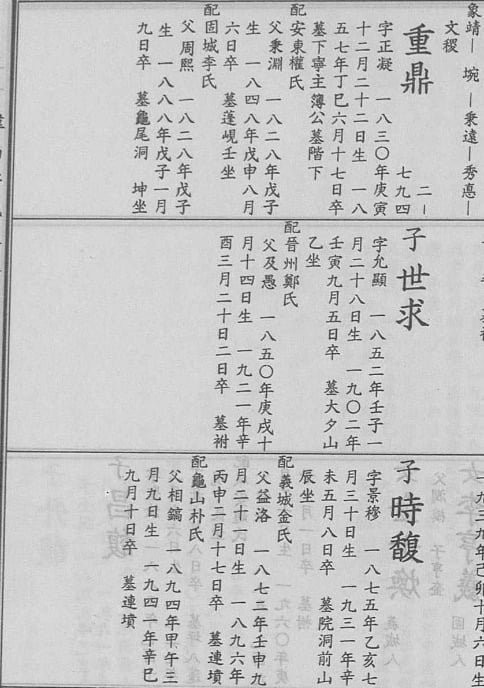 象靖—垸—秉遠—秀悳—
文稷
重鼎 二—七九四
字正凝 一八三〇年庚寅
十二月二十二日生 一八
五七年丁巳六月十七日卒
墓下寧主簿公墓階下
配安東權氏
父秉淵 一八二八年戊子
生 一八四八年戊申八月
六日卒 墓蓬峴壬坐
配固城李氏
父周熙 一八二八年戊子
生 一八八八年戊子一月
九日卒 墓龜尾洞 坤坐
子世求
字允顯 一八五二年壬子一
月二十八日生 一九〇二年
壬寅九月五日卒 墓大夕山
乙坐
配晉州鄭氏
父及愚 一八五〇年庚戌十
月十四日生 一九二一年辛
酉三月二十日二日卒 墓祔
一九三九年己卯十月六日生
子時馥
字景穆 一八七五年乙亥七
月三十日生 一九三一年辛
未五月八日卒 墓院洞前山
辰坐
配義城金氏
父益洛 一八七二年壬申九
月二十一日生 一八九六年
丙申二月十七日卒 墓連墳
配龜山朴氏
父相鎬 一八九四年甲午三
月九日生 一九四一年辛巳
九月十日卒 墓連墳